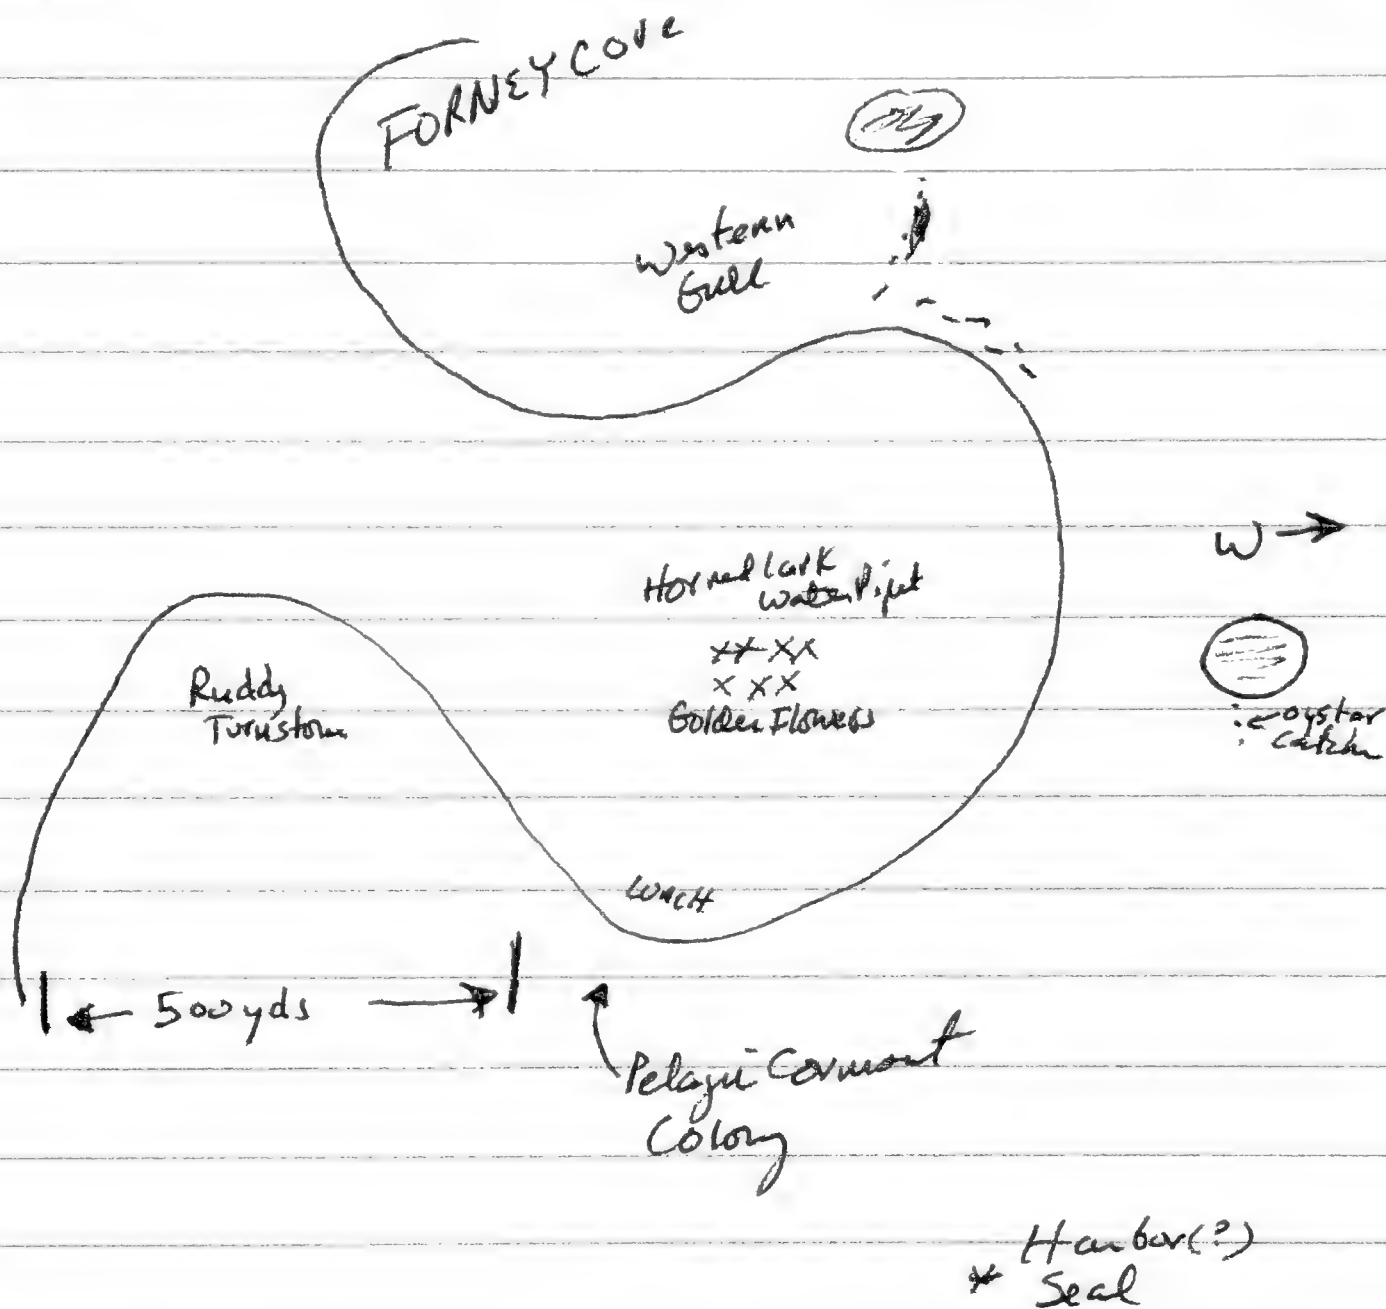 FORNEY COVE
Western
Gull
W
Horned Lark
Water Pipit
XX XX
X XX
Golden Flowers
Ruddy
Turnstone
oyster
catcher
LUNCH
500 yds
Pelagic Cormorant
Colony
Harbor(?)
* Seal